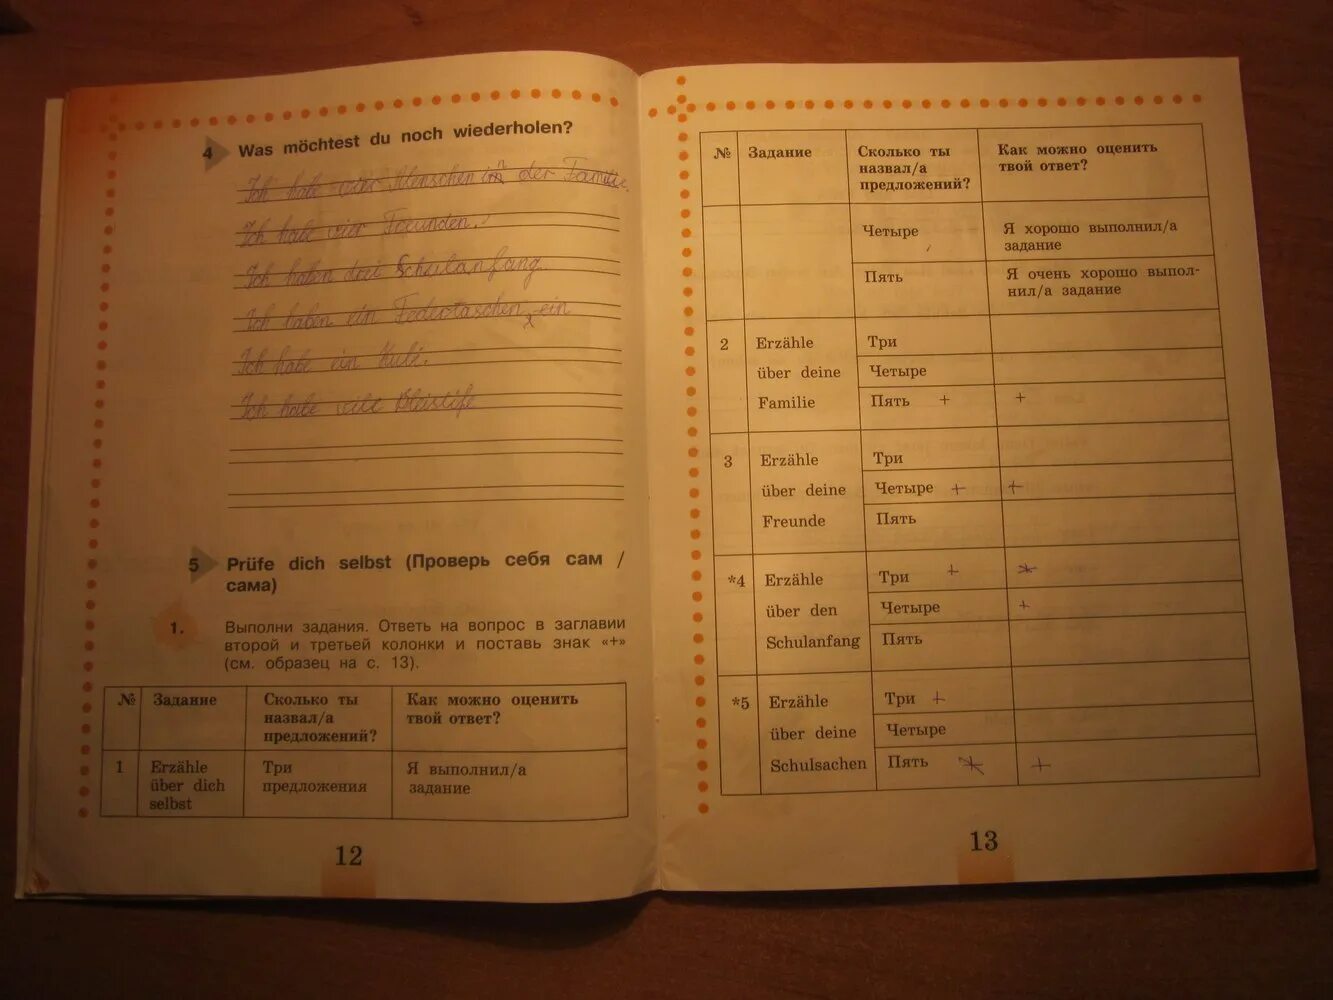 4 Was möchtest du noch wiederholen?
Ich habe vier Menschen in der Familie.
Ich habe vier Freunden.
Ich haben drei Schulanfang.
Ich haben ein Federtaschen ein
Ich habe ein Kuli.
Ich habe Bleistife
5 Prüfe dich selbst (Проверь себя сам /
сама)
1. Выполни задания. Ответь на вопрос в заглавии
второй и третьей колонки и поставь знак «+»
(см. образец на с. 13).
№ Задание Сколько ты назвал/а предложений? Как можно оценить твой ответ?
1 Erzähle über dich selbst Три предложения Я выполнил/а задание
12
№ Задание Сколько ты назвал/а предложений? Как можно оценить твой ответ?
Четыре Я хорошо выполнил/а задание
Пять Я очень хорошо выпол-
нил/а задание
2 Erzähle Три
über deine Четыре
Familie Пять + +
3 Erzähle Три
über deine Четыре + +
Freunde Пять
*4 Erzähle Три +
über den Четыре +
Schulanfang Пять
*5 Erzähle Три +
über deine Четыре
Schulsachen Пять +
13